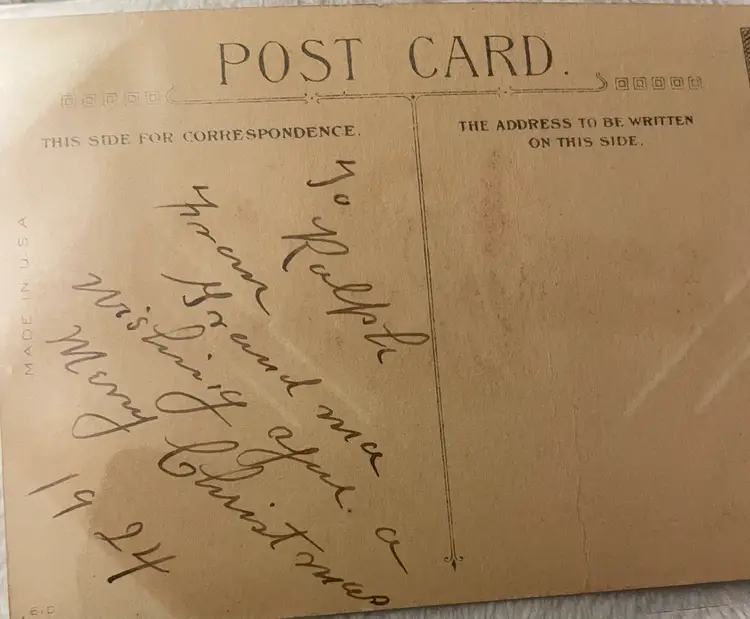 POST CARD.
THIS SIDE FOR CORRESPONDENCE.
THE ADDRESS TO BE WRITTEN
ON THIS SIDE.
To
Ralph
From
Grand ma
Wishing a
Merry Christmas
1924
MADE IN U.S.A
E.C